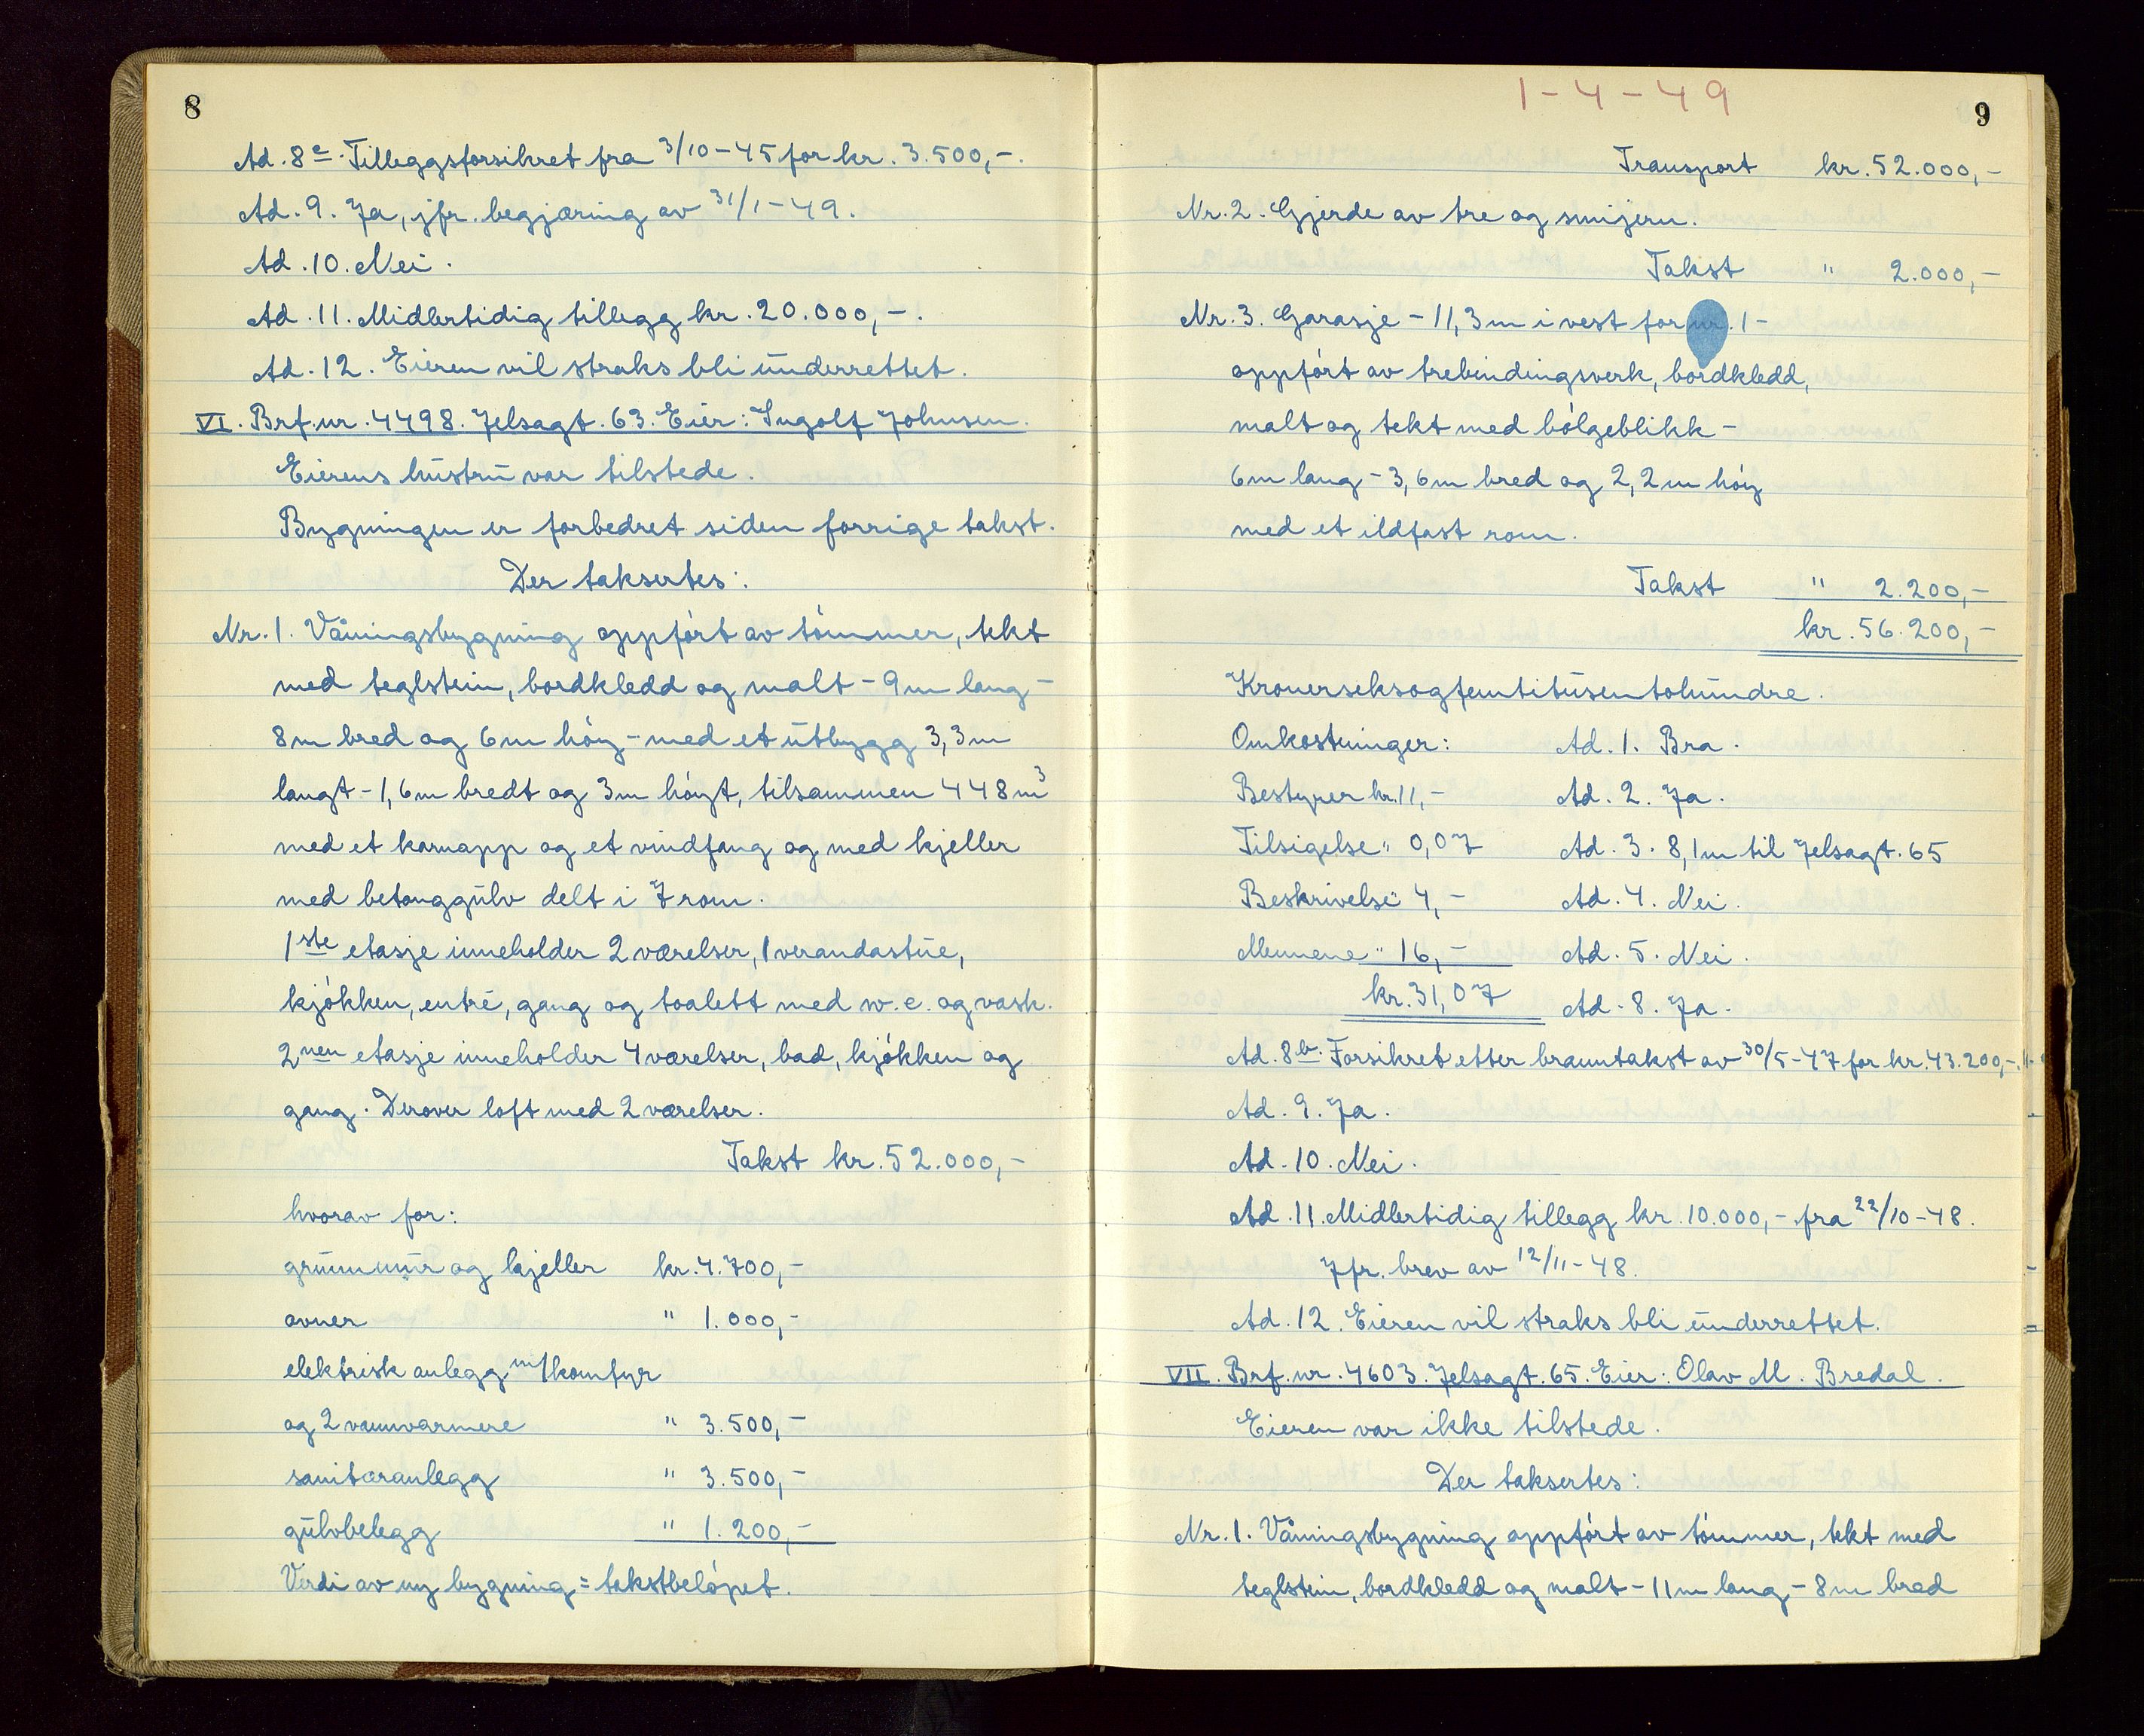 8
Ad. 8c. Tilleggsforsikret fra 3/10-45 for kr. 3.500,-.
Ad. 9. Ja, jfr. begjæring av 31/1-49.
Ad. 10. Nei.
Ad. 11. Midlertidig tillegg kr. 20.000,-.
Ad. 12. Eieren vil straks bli underrettet.
VI. Brf.nr. 4498. Jelsagt. 63. Eier: Ingolf Johnsen.
Eierens hustru var tilstede.
Bygningen er forbedret siden forrige takst.
Der taksertes:
Nr. 1. Våningsbygning oppført av tømmer, tekt
med teglstein, bordkledd og malt - 9m lang -
8m bred og 6m høy - med et utbygg 3,3m
langt - 1,6m bredt og 3m høyt, tilsammen 448m³
med et karnapp og et vindfang og med kjeller
med betonggulv delt i 7 rom.
1ste etasje inneholder 2 værelser, 1 verandastue,
kjøkken, entré, gang og toalett med w.c. og vask.
2nen etasje inneholder 4 værelser, bad, kjøkken og
gang. Derover loft med 2 værelser.
Takst kr. 52.000,-
hvorav for:
grunnmur og kjeller kr. 4.700,-
ovner " 1.000,-
elektrisk anlegg m/1 komfyr
og 2 vannvarmere " 3.500,-
sanitæranlegg " 3.500,-
gulvbelegg " 1.200,-
Verdi av ny bygning = takstbeløpet.
1-4-49
9
Transport kr. 52.000,-
Nr. 2. Gjerde av tre og smijern.
Takst " 2.000,-
Nr. 3. Garasje - 11,3m i vest for nr. 1 -
oppført av trebindingsverk, bordkledd,
malt og tekt med bølgeblikk -
6m lang - 3,6m bred og 2,2m høy
med et ildfast rom.
Takst " 2.200,-
kr. 56.200,-
Kronerseksogfemtitusentohundre.
Omkostninger: Ad. 1. Bra.
Bestyrer kr. 11,- Ad. 2. Ja.
Tilsigelse " 0,07 Ad. 3. 8,1m til Jelsagt. 65
Beskrivelse " 4,- Ad. 4. Nei.
Mennene " 16,- Ad. 5. Nei.
kr. 31,07 Ad. 8. Ja.
Ad. 8b. Forsikret etter branntakst av 30/5-47 for kr. 43.200,-.
Ad. 9. Ja.
Ad. 10. Nei.
Ad. 11. Midlertidig tillegg kr. 10.000,- fra 22/10-48.
Jfr. brev av 12/11-48.
Ad. 12. Eieren vil straks bli underrettet.
VII. Brf.nr. 4603. Jelsagt. 65. Eier: Olav M. Bredal.
Eieren var ikke tilstede.
Der taksertes:
Nr. 1. Våningsbygning oppført av tømmer, tekt med
teglstein, bordkledd og malt - 11m lang - 8m bred